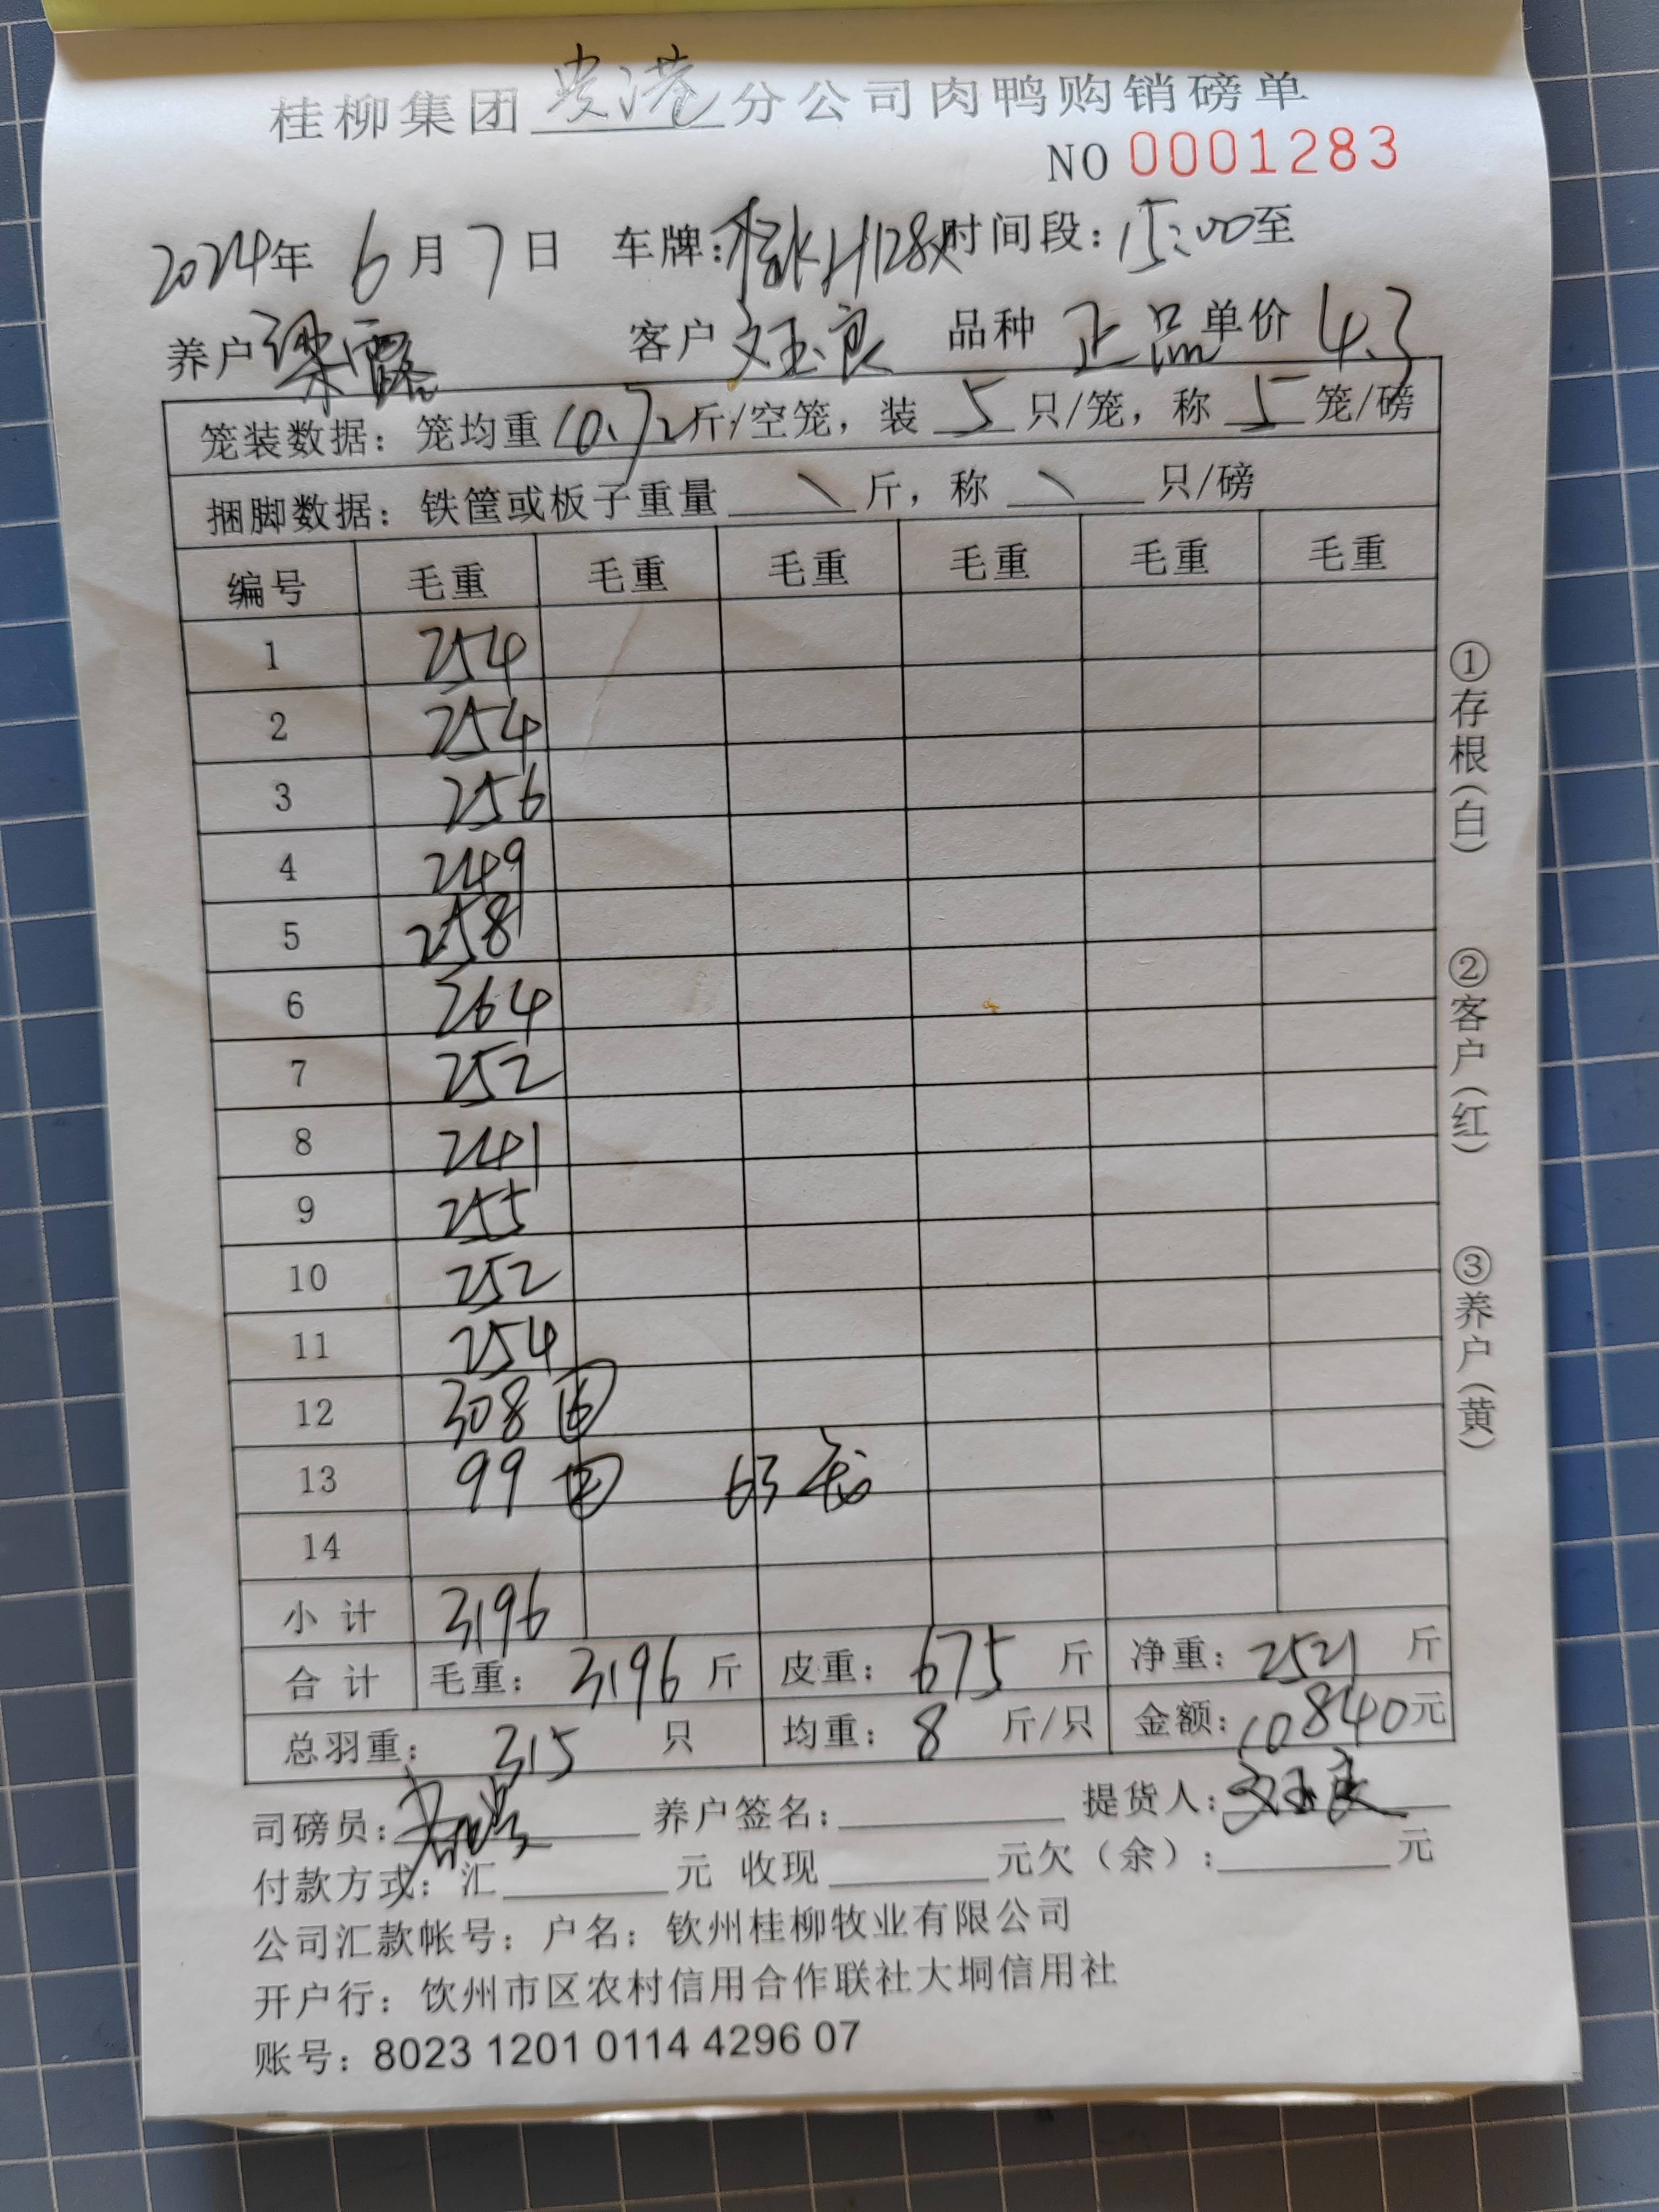 桂柳集团贵港分公司肉鸭购销磅单
NO 0001283
2024年 6月 7日 车牌: 时间段:15:00至
养户 梁露 客户 文玉良 品种 正品 单价 4.3
笼装数据:笼均重 10.72斤/空笼,装 5 只/笼,称 5 笼/磅
捆脚数据:铁筐或板子重量 \ 斤,称 \ 只/磅
编号 毛重 毛重 毛重 毛重 毛重 毛重
1 254
2 254
3 256
4 249
5 258
6 264
7 252
8 241
9 255
10 252
11 254
12 308 ⑥
13 99 ② 63
14
小计 3196
合计 毛重:3196斤 皮重:675斤 净重:2521斤
总羽重:315只 均重:8斤/只 金额:10840元
司磅员: 养户签名: 提货人:文玉良
付款方式:汇 元 收现 元欠(余): 元
公司汇款帐号:户名:钦州桂柳牧业有限公司
开户行:钦州市区农村信用合作联社大垌信用社
账号:8023 1201 0114 4296 07
①存根(白) ②客户(红) ③养户(黄)